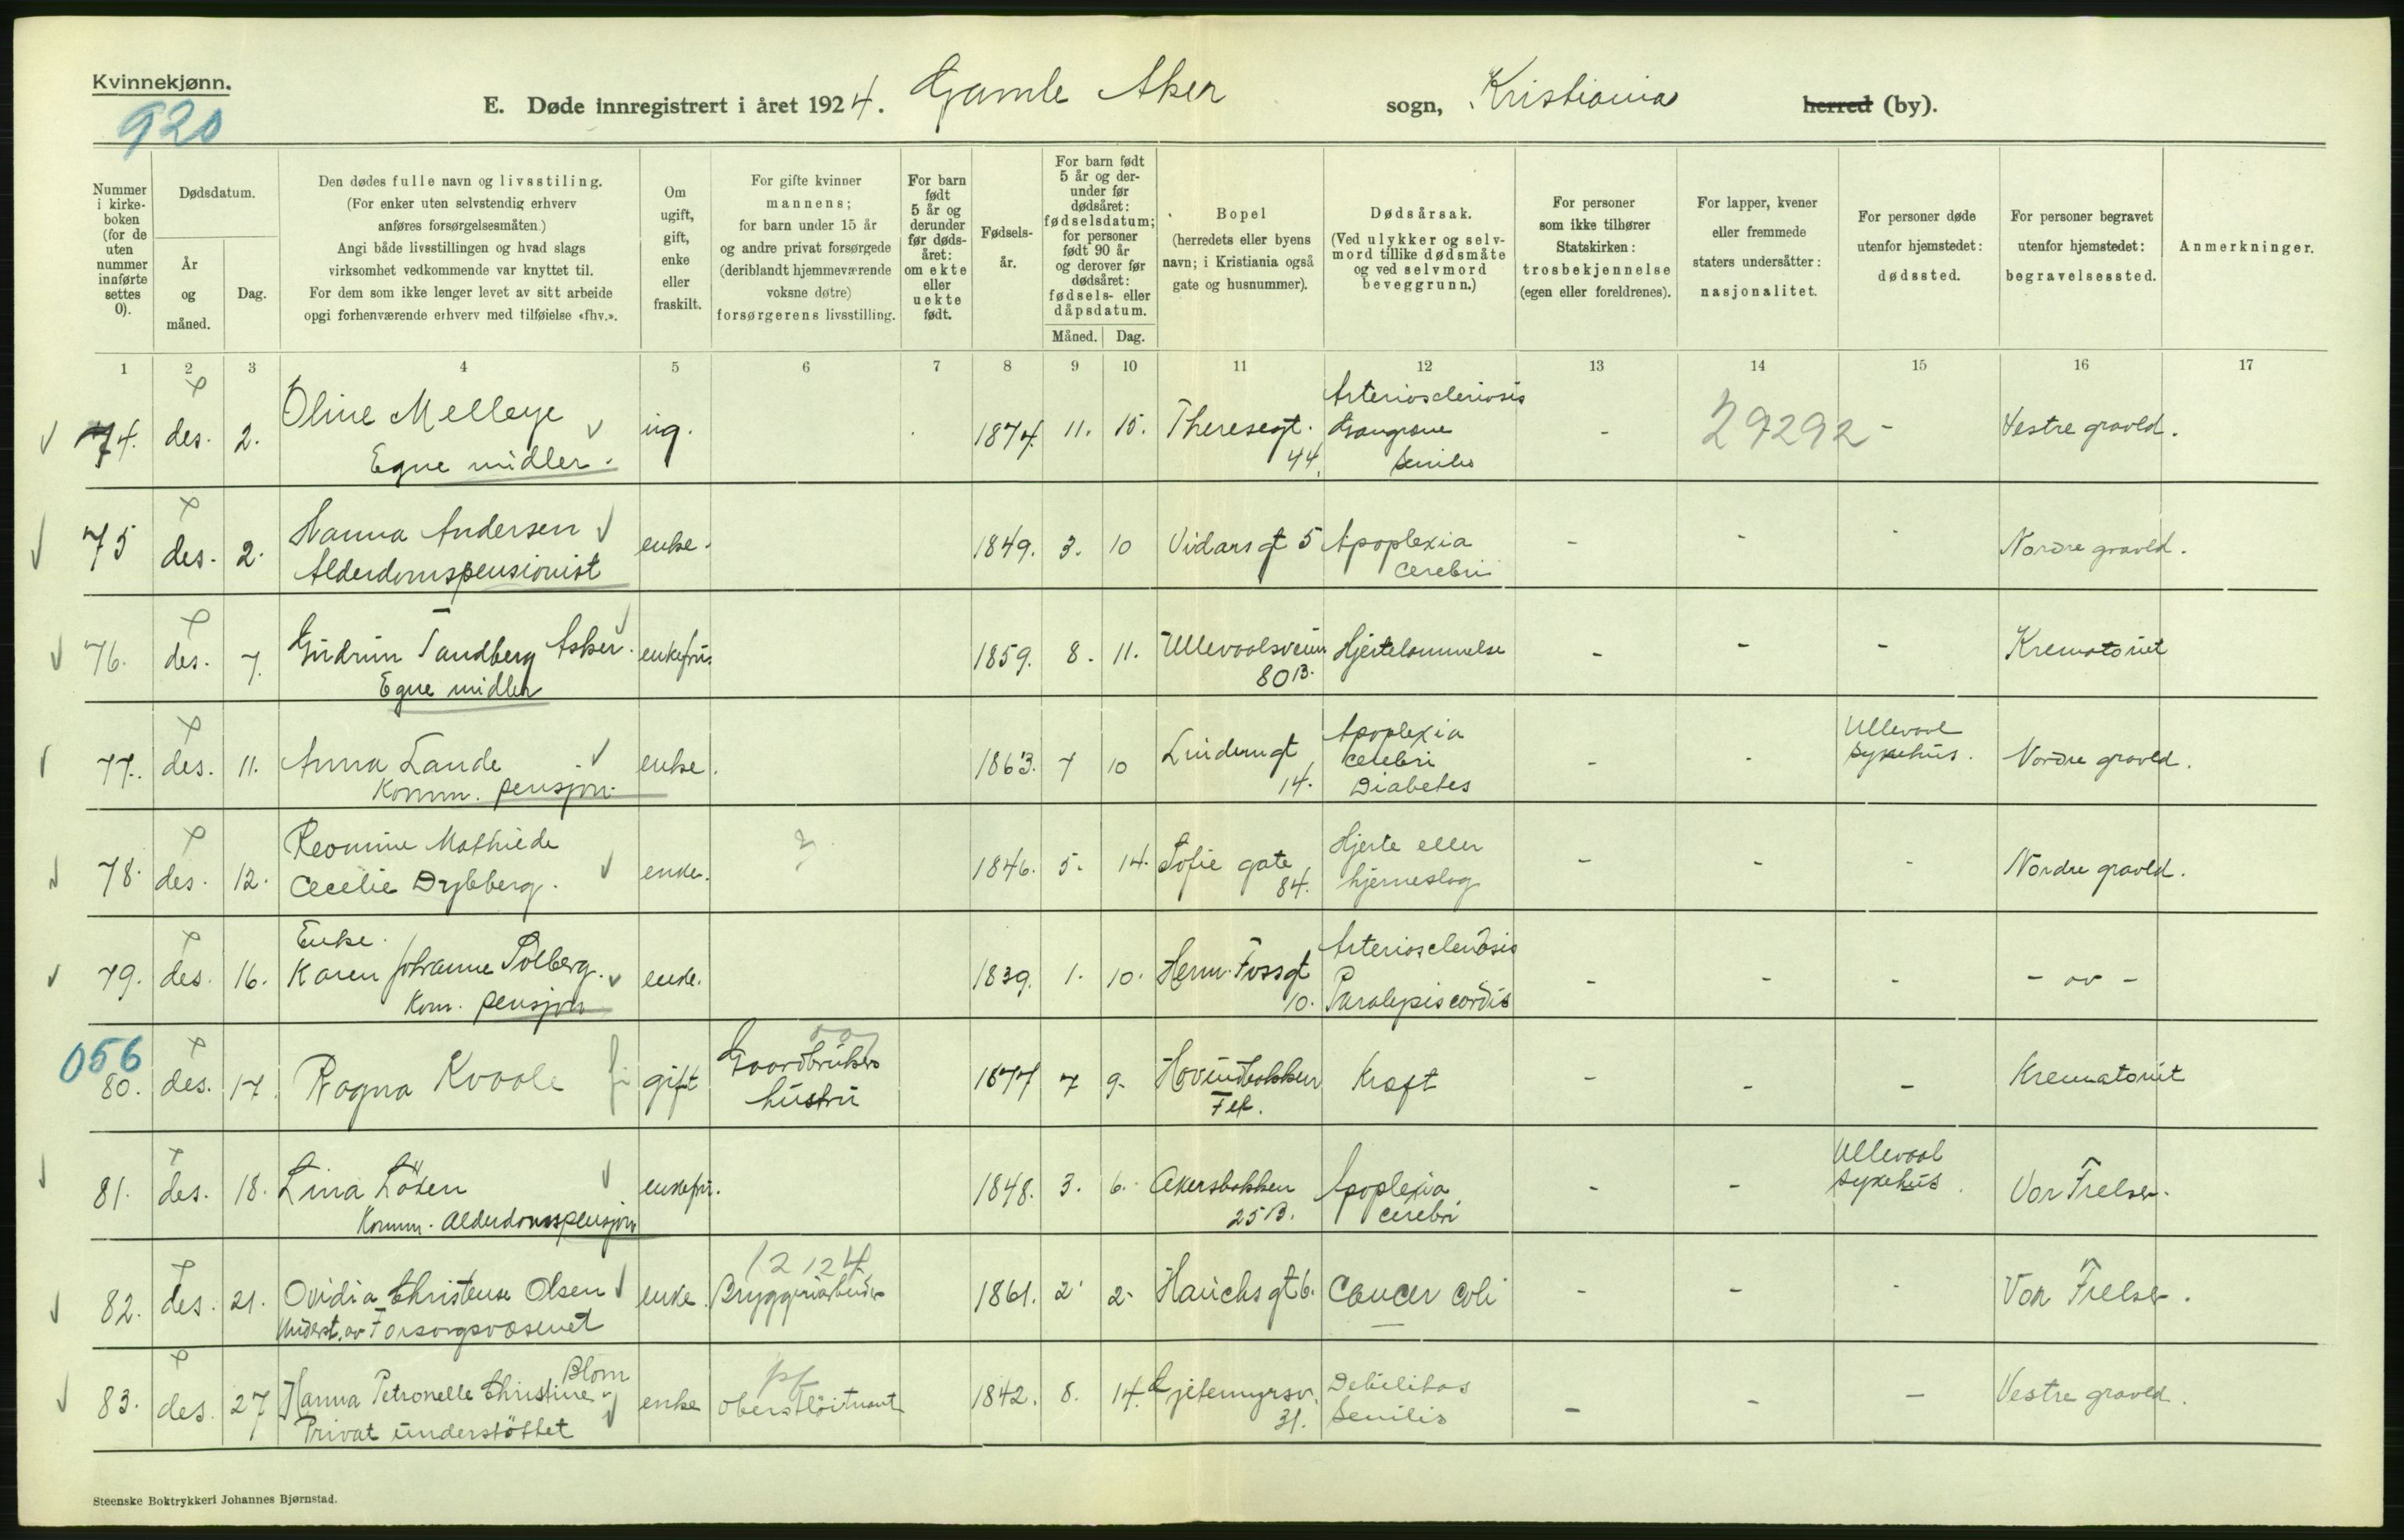 Kvinnekjønn.
920
E. Døde innregistrert i året 1924. Gamle Aker sogn, Kristiania herred (by).
Nummer i kirke- boken (for de uten nummer innførte settes 0).
Dødsdatum.
År og måned.
Dag.
Den dødes fulle navn og livsstilling.
(For enker uten selvstendig erhverv
anføres forsørgelsesmåten.)
Angi både livsstillingen og hvad slags
virksomhet vedkommende var knyttet til.
For dem som ikke lenger levet av sitt arbeide
opgi forhenværende erhverv med tilføielse «fhv.».
Om ugift, gift, enke eller fraskilt.
For gifte kvinner
mannens;
for barn under 15 år
og andre privat forsørgede
(deriblandt hjemmeværende
voksne døtre)
forsørgerens livsstilling.
For barn født 5 år og derunder før døds- året: om ekte eller uekte født.
Fødsels- år.
For barn født 5 år og der- under før dødsåret: fødselsdatum; for personer født 90 år og derover før dødsåret: fødsels- eller dåpsdatum.
Måned. Dag.
Bopel
(herredets eller byens
navn; i Kristiania også
gate og husnummer).
Dødsårsak.
(Ved ulykker og selv-
mord tillike dødsmåte
og ved selvmord
beveggrunn.)
For personer
som ikke tilhører
Statskirken:
trosbekjennelse
(egen eller foreldrenes).
For lapper, kvener
eller fremmede
staters undersåtter:
nasjonalitet.
For personer døde
utenfor hjemstedet:
dødssted.
For personer begravet
utenfor hjemstedet:
begravelsessted.
Anmerkninger.
1 2 3 4 5 6 7 8 9 10 11 12 13 14 15 16 17
74. des. 2. Oline Melleye ug. 1874. 11. 15. Theresegt. 44. Arteriosclerosis Gangrene senilis - 29292 - Vestre gravld.
Egne midler.
75 des. 2. Hanna Andersen enke. 1849. 3. 10 Vidars gt 5 Apoplexia cerebri - - - Nordre gravld.
Alderdomspensionist
76. des. 7. Gudrun Tandberg Asker. enkefru. 1859. 8. 11. Ullevoalsveien 80B. Hjertelammelse - - - Krematoriet
Egne midler
77. des. 11. Anna Lande enke. 1863. 7 10 Lindemgt 14. Apoplexia cerebri Diabetes - - Ullevaal sykehus. Nordre gravld.
Komm. pensjon.
78. des. 12. Mathilde Cecilie Dybberg. enke. 1846. 5. 14. Sofie gate 84. Hjerte eller hjerneslag - - - Nordre gravld.
79. des. 16. Enke. Karen Johanne Solberg. enke. 1839. 1. 10. Herm. Fossgt 10. Arteriosclerosis Paralysis cordis - - - - av -
Kom. pensjon
056
80. des. 17. Ragna Kvaale gift Gaardbrukers hustru 1877 7 9. Hovindbakken Kræft - - - Krematoriet
81. des. 18. Lina Löken enkefru. 1848. 3. 6. Akersbakken 25B. Apoplexia cerebri - - Ullevaal sykehus. Vor Frelser.
Komm. Alderdomspensjon
12124
82. des. 21. Ovidia Christense Olsen enke Bryggeriarbeider 1861. 2. 2. Hauchs gt 6. Cancer coli - - - Vor Frelser.
Underst. av Forsorgsvæsenet
83. des. 27 Hanna Petronelle Christine Blom enke oberstlöitnant 1842. 8. 14. Gjetemyrsv. 31. Debilitas senilis - - - Vestre gravld.
Privat understöttet
Steenske Boktrykkeri Johannes Bjørnstad.